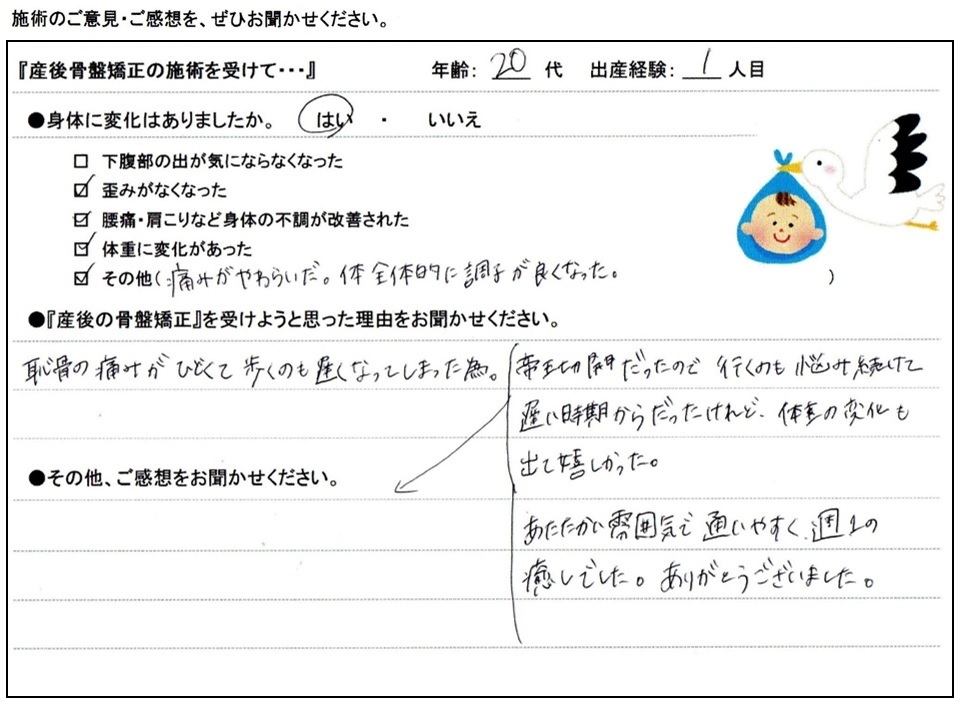 施術のご意見・ご感想を、ぜひお聞かせください。
『産後骨盤矯正の施術を受けて・・・』 年齢: 20 代 出産経験: 1 人目
●身体に変化はありましたか。 はい ・ いいえ
□ 下腹部の出が気にならなくなった
☑ 歪みがなくなった
☑ 腰痛・肩こりなど身体の不調が改善された
☑ 体重に変化があった
☑ その他(痛みがやわらいだ。体全体的に調子が良くなった。 )
●『産後の骨盤矯正』を受けようと思った理由をお聞かせください。
恥骨の痛みがひどくて歩くのも遅くなってしまった為。
●その他、ご感想をお聞かせください。
帝王切開だったので行くのも悩み続けて
遅い時期からだったけれど、体重の変化も
出て嬉しかった。
あたたかい雰囲気で通いやすく、週1の
癒しでした。ありがとうございました。